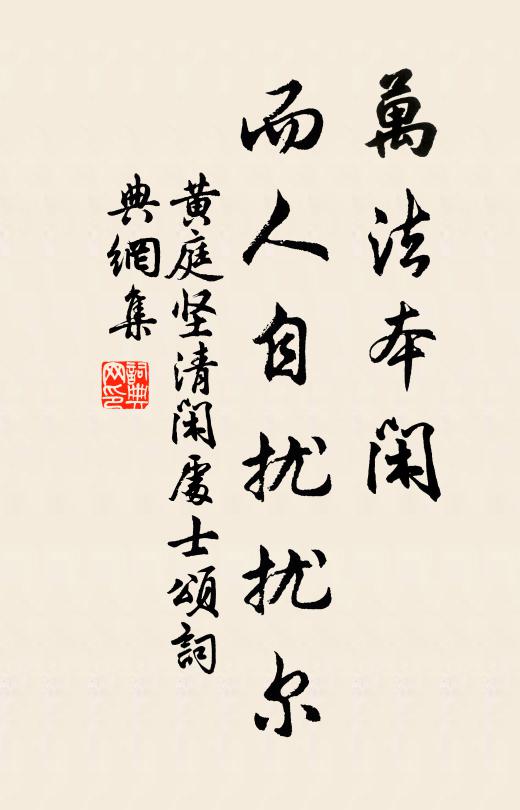 萬法本閑
而人自扰扰尔
黄庭坚清閑處士頌詞
典網集
詞典
网印